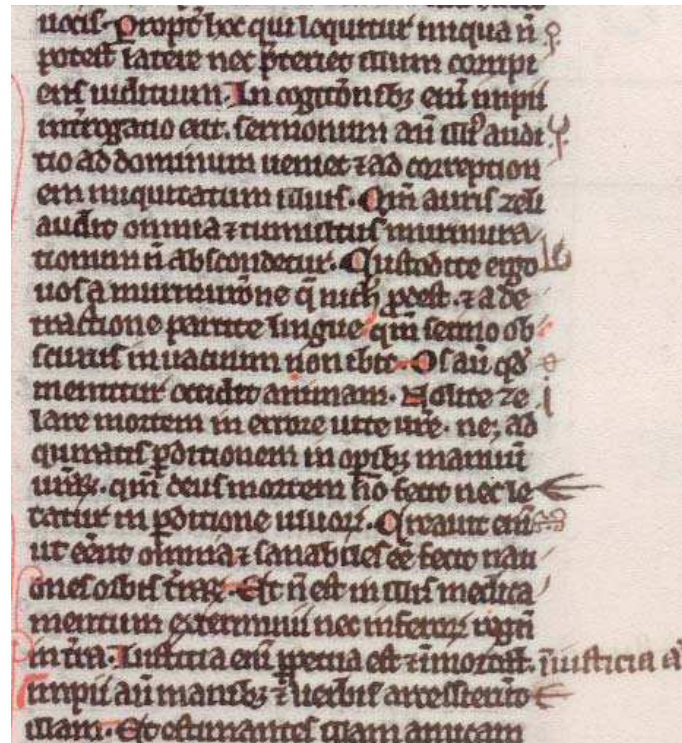 uocis. Propt̄ hoc qui loquitur iniqua n̄
potest latere nec p̄teriet illum corripi
ens iudicium. In cogitōnibꝫ enī impii
int̄rogatio erit. sermonum aū illiꝰ audi
tio ad dominum ueniet ⁊ ad correption
em iniquitatum illius. Qm̄ auris zeli
audit omnia ⁊ tumultus murmura
tionum n̄ abscondetur. Custodite ergo
uos a murmurōne q̄ nich̄ ꝓdest. ⁊ a de
tractione parcite lingue qm̄ sermo ob
scurus in uacuum non ibit. Os aū qd̄
mentitur occidit animam. Nolite ze
lare mortem in errore uite ur̄e. neꝫ ad
quiratis ꝑditionem in opibꝫ manuū
ur̄aꝝ. qm̄ deus mortem n̄ fecit nec le
tatur in ꝑditione uiuoꝝ. Creauit enī
ut eēnt omnia ⁊ sanabiles ēe fecit nati
ones orbis t̄raꝝ. Et n̄ est in illis medica
mentum exterminii nec inferoꝝ regnū
in t̄ra. Iusticia enī ꝑpetua est ⁊ īmortał. īiusticia
impii aū manibꝫ ⁊ uerbis arcessierūt
illam. Et estimantes illam amicam